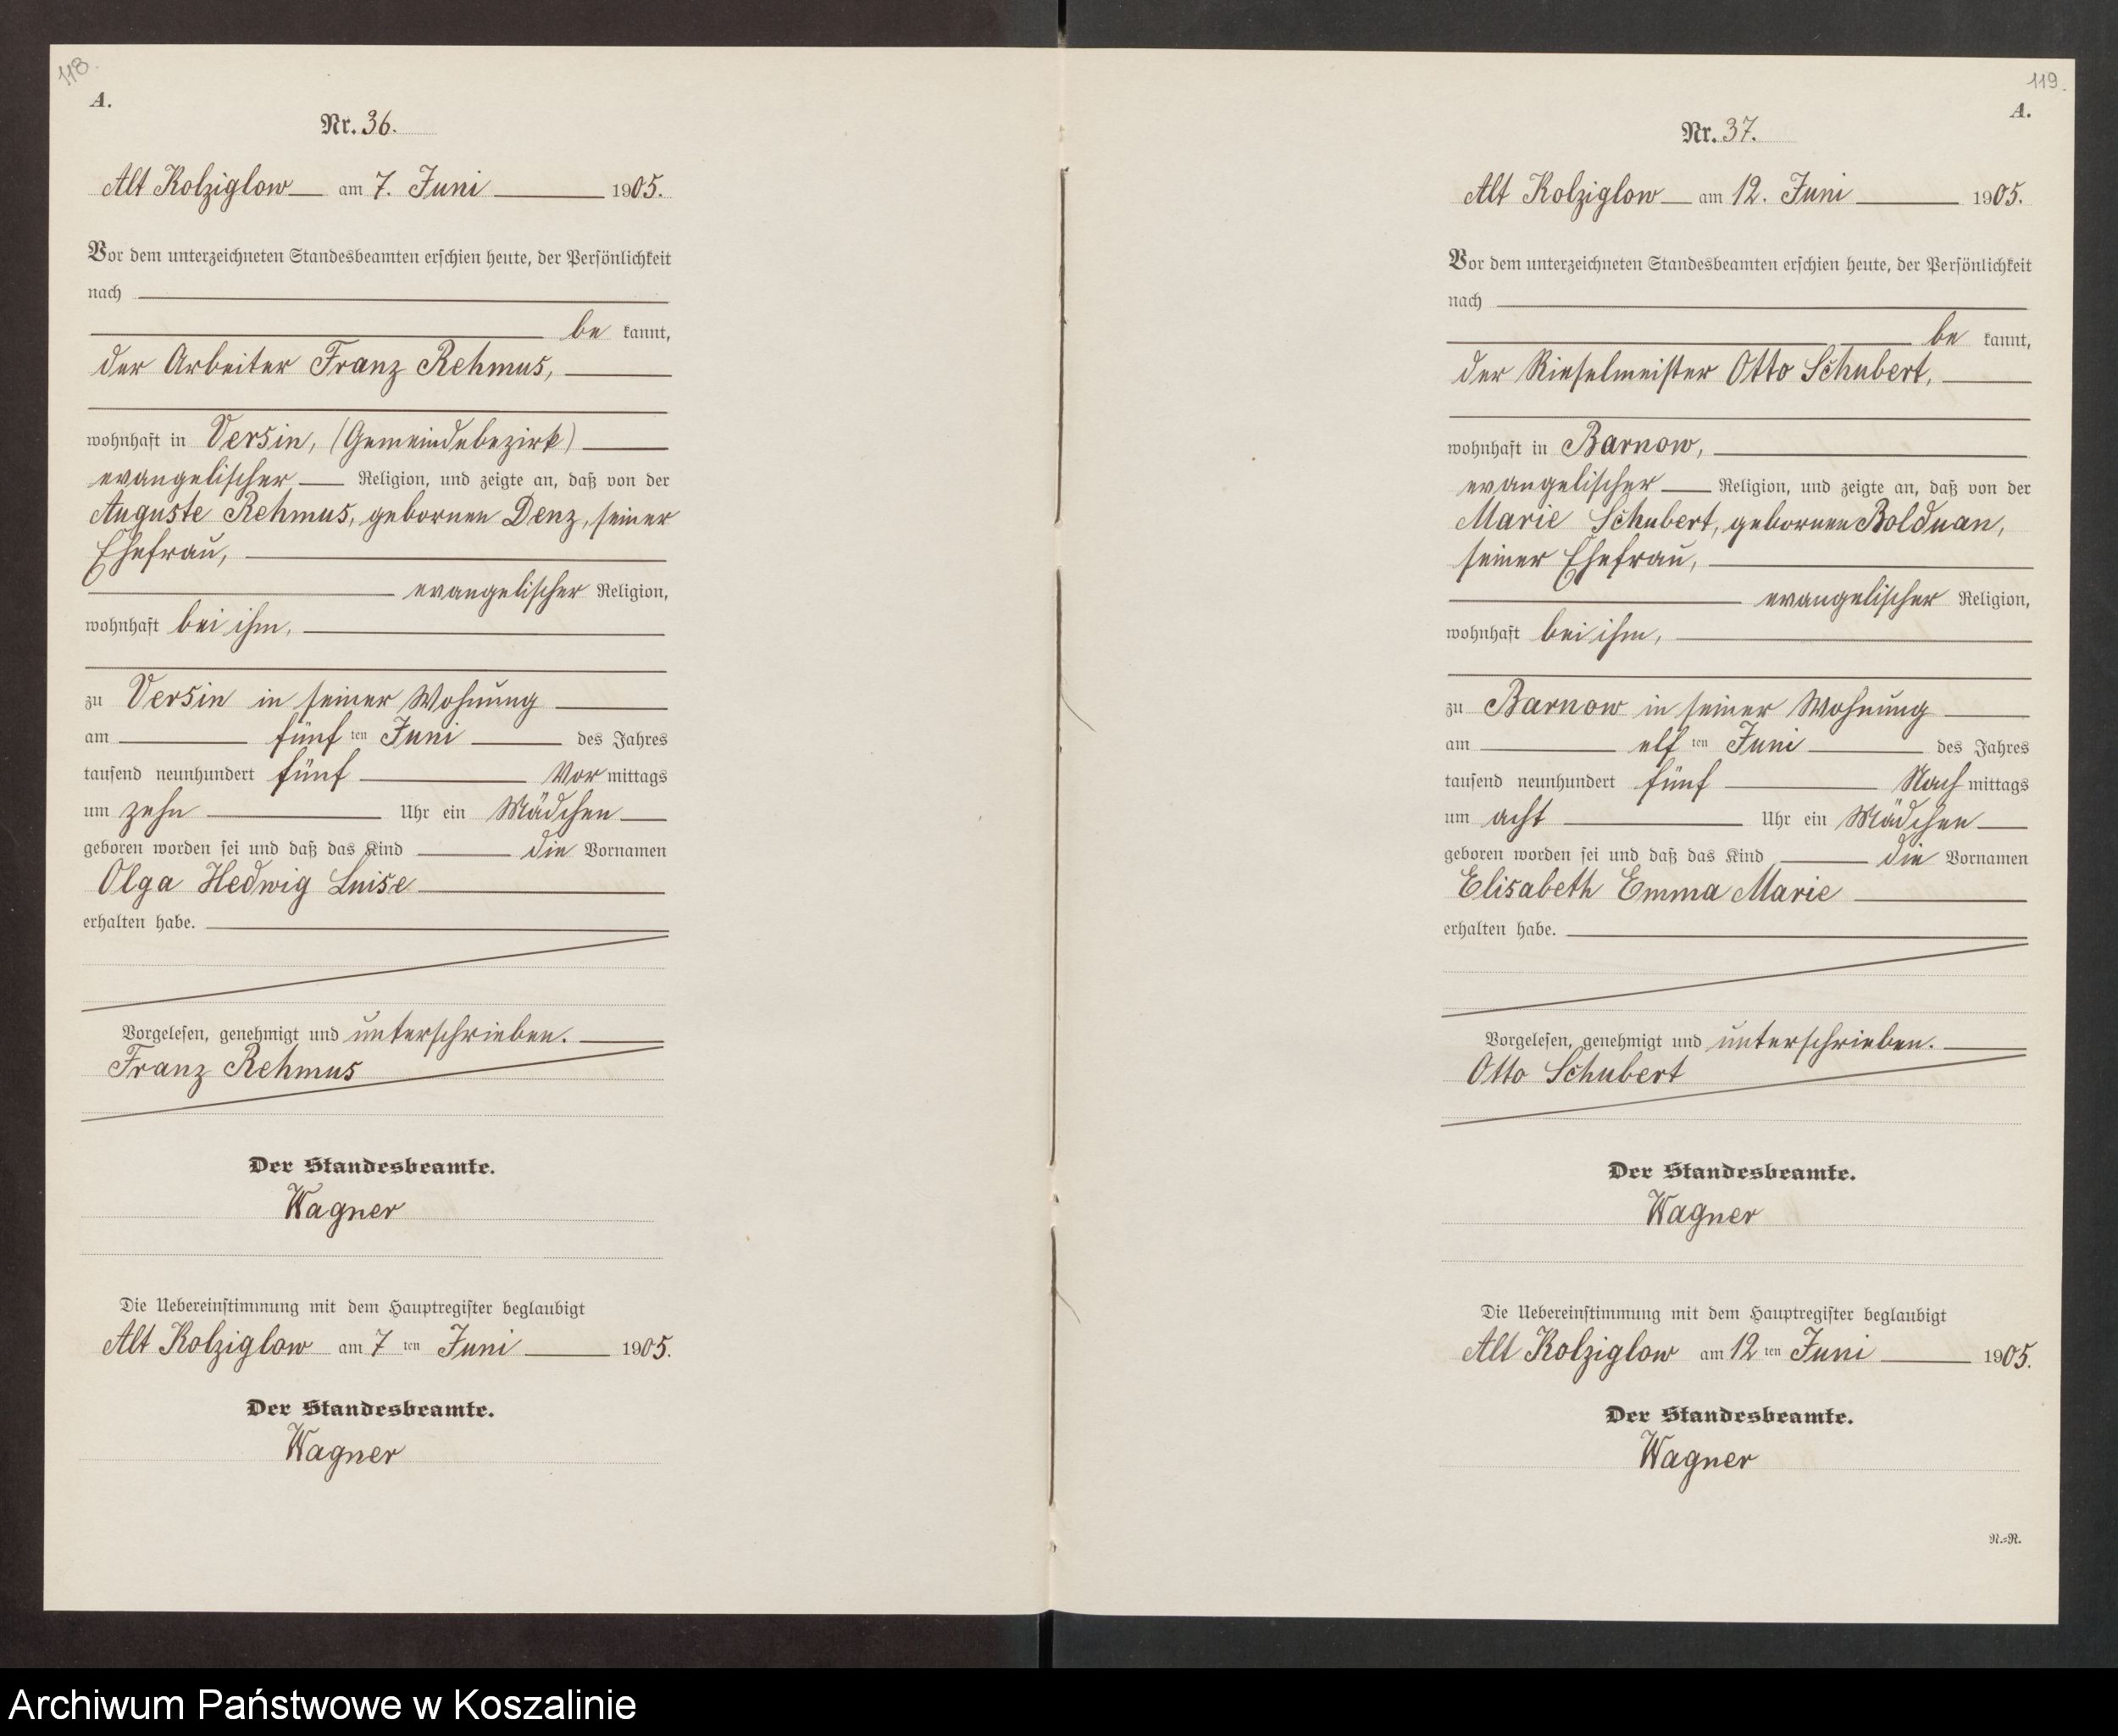 118.
A.
Nr. 36.
Alt Kolziglow am 7. Juni 1905.
Vor dem unterzeichneten Standesbeamten erschien heute, der Persönlichkeit
nach
be kannt,
der Arbeiter Franz Rehmus,
wohnhaft in Versin, (Gemeindebezirk)
evangelischer Religion, und zeigte an, daß von der
Auguste Rehmus, gebornen Denz, seiner
Ehefrau,
evangelischer Religion,
wohnhaft bei ihm,
zu Versin in seiner Wohnung
am fünf ten Juni des Jahres
tausend neunhundert fünf Vor mittags
um zehn Uhr ein Mädchen
geboren worden sei und daß das Kind die Vornamen
Olga Hedwig Luise
erhalten habe.
Vorgelesen, genehmigt und unterschrieben.
Franz Rehmus
Der Standesbeamte.
Wagner
Die Uebereinstimmung mit dem Hauptregister beglaubigt
Alt Kolziglow am 7 ten Juni 1905.
Der Standesbeamte.
Wagner
119.
A.
Nr. 37.
Alt Kolziglow am 12. Juni 1905.
Vor dem unterzeichneten Standesbeamten erschien heute, der Persönlichkeit
nach
be kannt,
der Rieselmeister Otto Schubert,
wohnhaft in Barnow,
evangelischer Religion, und zeigte an, daß von der
Marie Schubert, gebornen Bolduan,
seiner Ehefrau,
evangelischer Religion,
wohnhaft bei ihm,
zu Barnow in seiner Wohnung
am elf ten Juni des Jahres
tausend neunhundert fünf Nach mittags
um acht Uhr ein Mädchen
geboren worden sei und daß das Kind die Vornamen
Elisabeth Emma Marie
erhalten habe.
Vorgelesen, genehmigt und unterschrieben.
Otto Schubert
Der Standesbeamte.
Wagner
Die Uebereinstimmung mit dem Hauptregister beglaubigt
Alt Kolziglow am 12 ten Juni 1905.
Der Standesbeamte.
Wagner
N.=R.
Archiwum Państwowe w Koszalinie